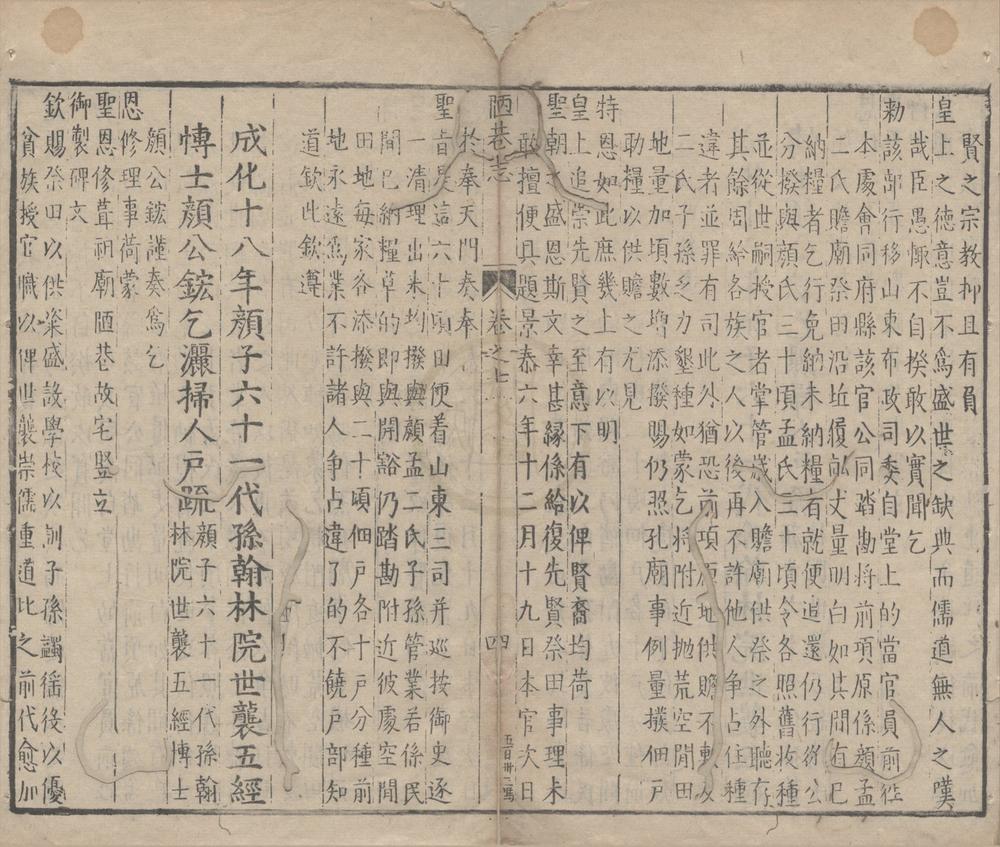 賢之宗教抑且有負
皇上之德意豈不為盛世之缺典而儒道無人之嘆
哉臣愚陬不自揆敢以實聞乞
勑該部行移山東布政司委自堂上的當官員前徃
本處會同府縣該官公同踏勘將前項原係顔孟
二氏贍廟祭田沿坵履畝丈量明白如其間有已
納糧者乞行免納未納糧者就便追還仍行從公
分撥與顔氏三十頃孟氏三十頃令各照舊收種
並從世嗣授官者掌管歲入贍廟供祭之外聽存
其餘周給各族之人以後再不許他人爭占住種
違者並罪有司此外猶恐前項原地供贍不敷及
二氏子孫乏力墾種如蒙乞將附近抛荒空閒田
地量加頃數增添撥賜仍照孔廟事例量撥佃戶
助糧以供贍之尤見
特恩如此庶幾上有以明
皇上追崇先賢之至意下有以俾賢裔均荷
聖朝之盛恩斯文幸甚緣係給復先賢祭田事理未
敢擅便具題景泰六年十二月十九日本官次日
陋巷志 卷之七 四 五百卅二萬
於奉天門奏奉
聖旨是這六十頃田便着山東三司并巡按御史逐
一清理出来均撥與顔孟二氏子孫管業若係民
間已納糧草的即與開豁仍踏勘附近彼處空閒
田地每家各添撥與二十頃佃戶各十戶分種前
地永遠為業不許諸人爭占違了的不饒戶部知
道欽此欽遵
成化十八年顔子六十一代孫翰林院世襲五經
博士顔公鋐乞灑掃人戶疏
顔子六十一代孫翰
林院世襲五經博士
顔公鋐謹奏為乞
恩修理事荷蒙
聖恩修葺祖廟陋巷故宅竪立
御製碑文
欽賜祭田以供粢盛設學校以訓子孫蠲徭役以優
貧族授官職以俾世襲崇儒重道比之前代愈加